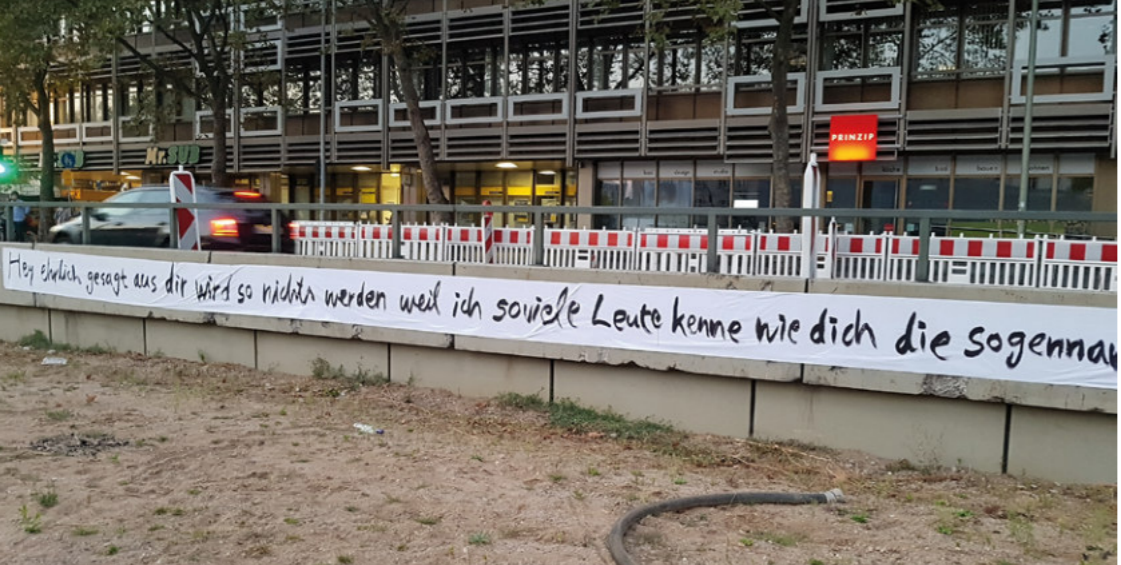 Mr.SUB
PRINZIP
Hey ehrlich gesagt aus dir wird so nichts werden weil ich soviele Leute kenne wie dich die sogennan